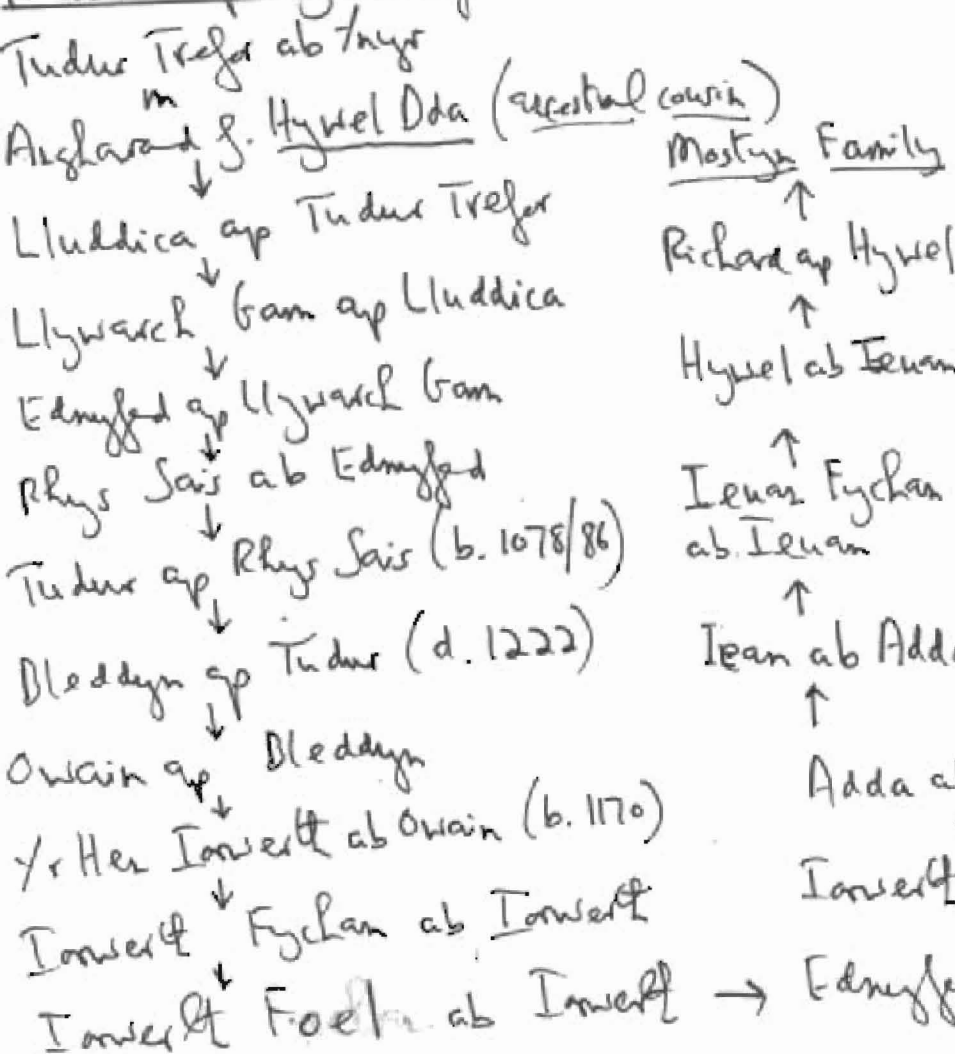 Tudur Trefor ab Ynyr
m
Angharad f. Hywel Dda (ancestral cousin)
↓
Lluddica ap Tudur Trefor
↓
Llywarch Gam ap Lluddica
↓
Ednyfed ap Llywarch Gam
↓
Rhys Sais ab Ednyfed
↓
Tudur ap Rhys Sais (b. 1078/86)
↓
Bleddyn ap Tudur (d. 1222)
↓
Owain ap Bleddyn
↓
Yr Hen Iorwerth ab Owain (b. 1170)
↓
Iorwerth Fychan ab Iorwerth
↓
Iorwerth Foel ab Iorwerth → Ednyfe
Mostyn Family
↑
Richard ap Hywel
↑
Hywel ab Ieuan
↑
Ieuan Fychan
ab Ieuan
↑
Iean ab Adda
↑
Adda a
Iorwerth